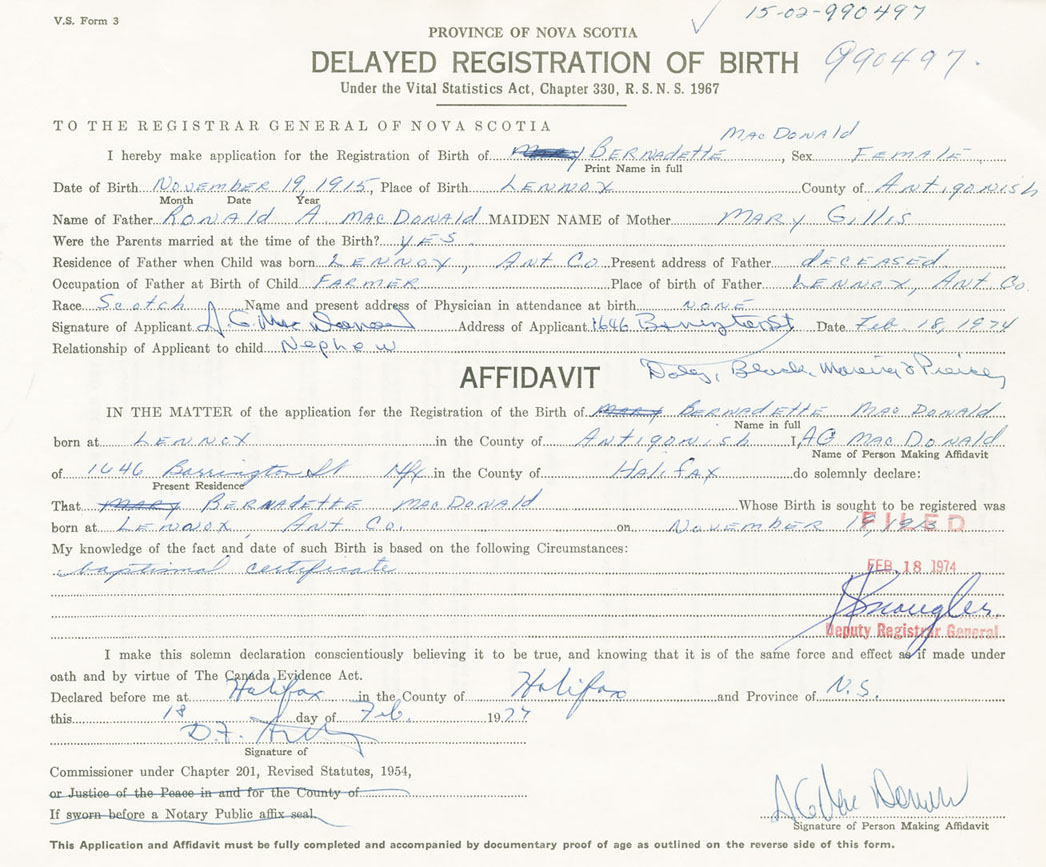 V.S. Form 3
15-02-990497
PROVINCE OF NOVA SCOTIA
DELAYED REGISTRATION OF BIRTH 990497.
Under the Vital Statistics Act, Chapter 330, R. S. N. S. 1967
TO THE REGISTRAR GENERAL OF NOVA SCOTIA
MacDonald
I hereby make application for the Registration of Birth of Mary Bernadette, Sex Female
Print Name in full
Date of Birth November 19, 1915, Place of Birth Lennox County of Antigonish
Month Date Year
Name of Father Ronald A MacDonald MAIDEN NAME of Mother Mary Gillis
Were the Parents married at the time of the Birth? yes
Residence of Father when Child was born Lennox, Ant Co Present address of Father deceased
Occupation of Father at Birth of Child Farmer Place of birth of Father Lennox, Ant Co.
Race Scotch Name and present address of Physician in attendance at birth none
Signature of Applicant A. G. MacDonald Address of Applicant 1646 Barrington St Date Feb 18, 1974
Relationship of Applicant to child Nephew
AFFIDAVIT Daley, Black, Moreira & Piercey
IN THE MATTER of the application for the Registration of the Birth of Mary Bernadette MacDonald
Name in full
born at Lennox in the County of Antigonish I, AG MacDonald
Name of Person Making Affidavit
of 1646 Barrington St Hfx in the County of Halifax do solemnly declare:
Present Residence
That Mary Bernadette MacDonald Whose Birth is sought to be registered was
born at Lennox, Ant Co. on November 19, 1915
FILED
My knowledge of the fact and date of such Birth is based on the following Circumstances:
baptismal certificate
FEB. 18 1974
Deputy Registrar General
I make this solemn declaration conscientiously believing it to be true, and knowing that it is of the same force and effect as if made under
oath and by virtue of The Canada Evidence Act.
Declared before me at Halifax in the County of Halifax and Province of N.S.
this 18 day of Feb. 1974
D.F.
Signature of
Commissioner under Chapter 201, Revised Statutes, 1954,
or Justice of the Peace in and for the County of
If sworn before a Notary Public affix seal.
A G MacDonald
Signature of Person Making Affidavit
This Application and Affidavit must be fully completed and accompanied by documentary proof of age as outlined on the reverse side of this form.